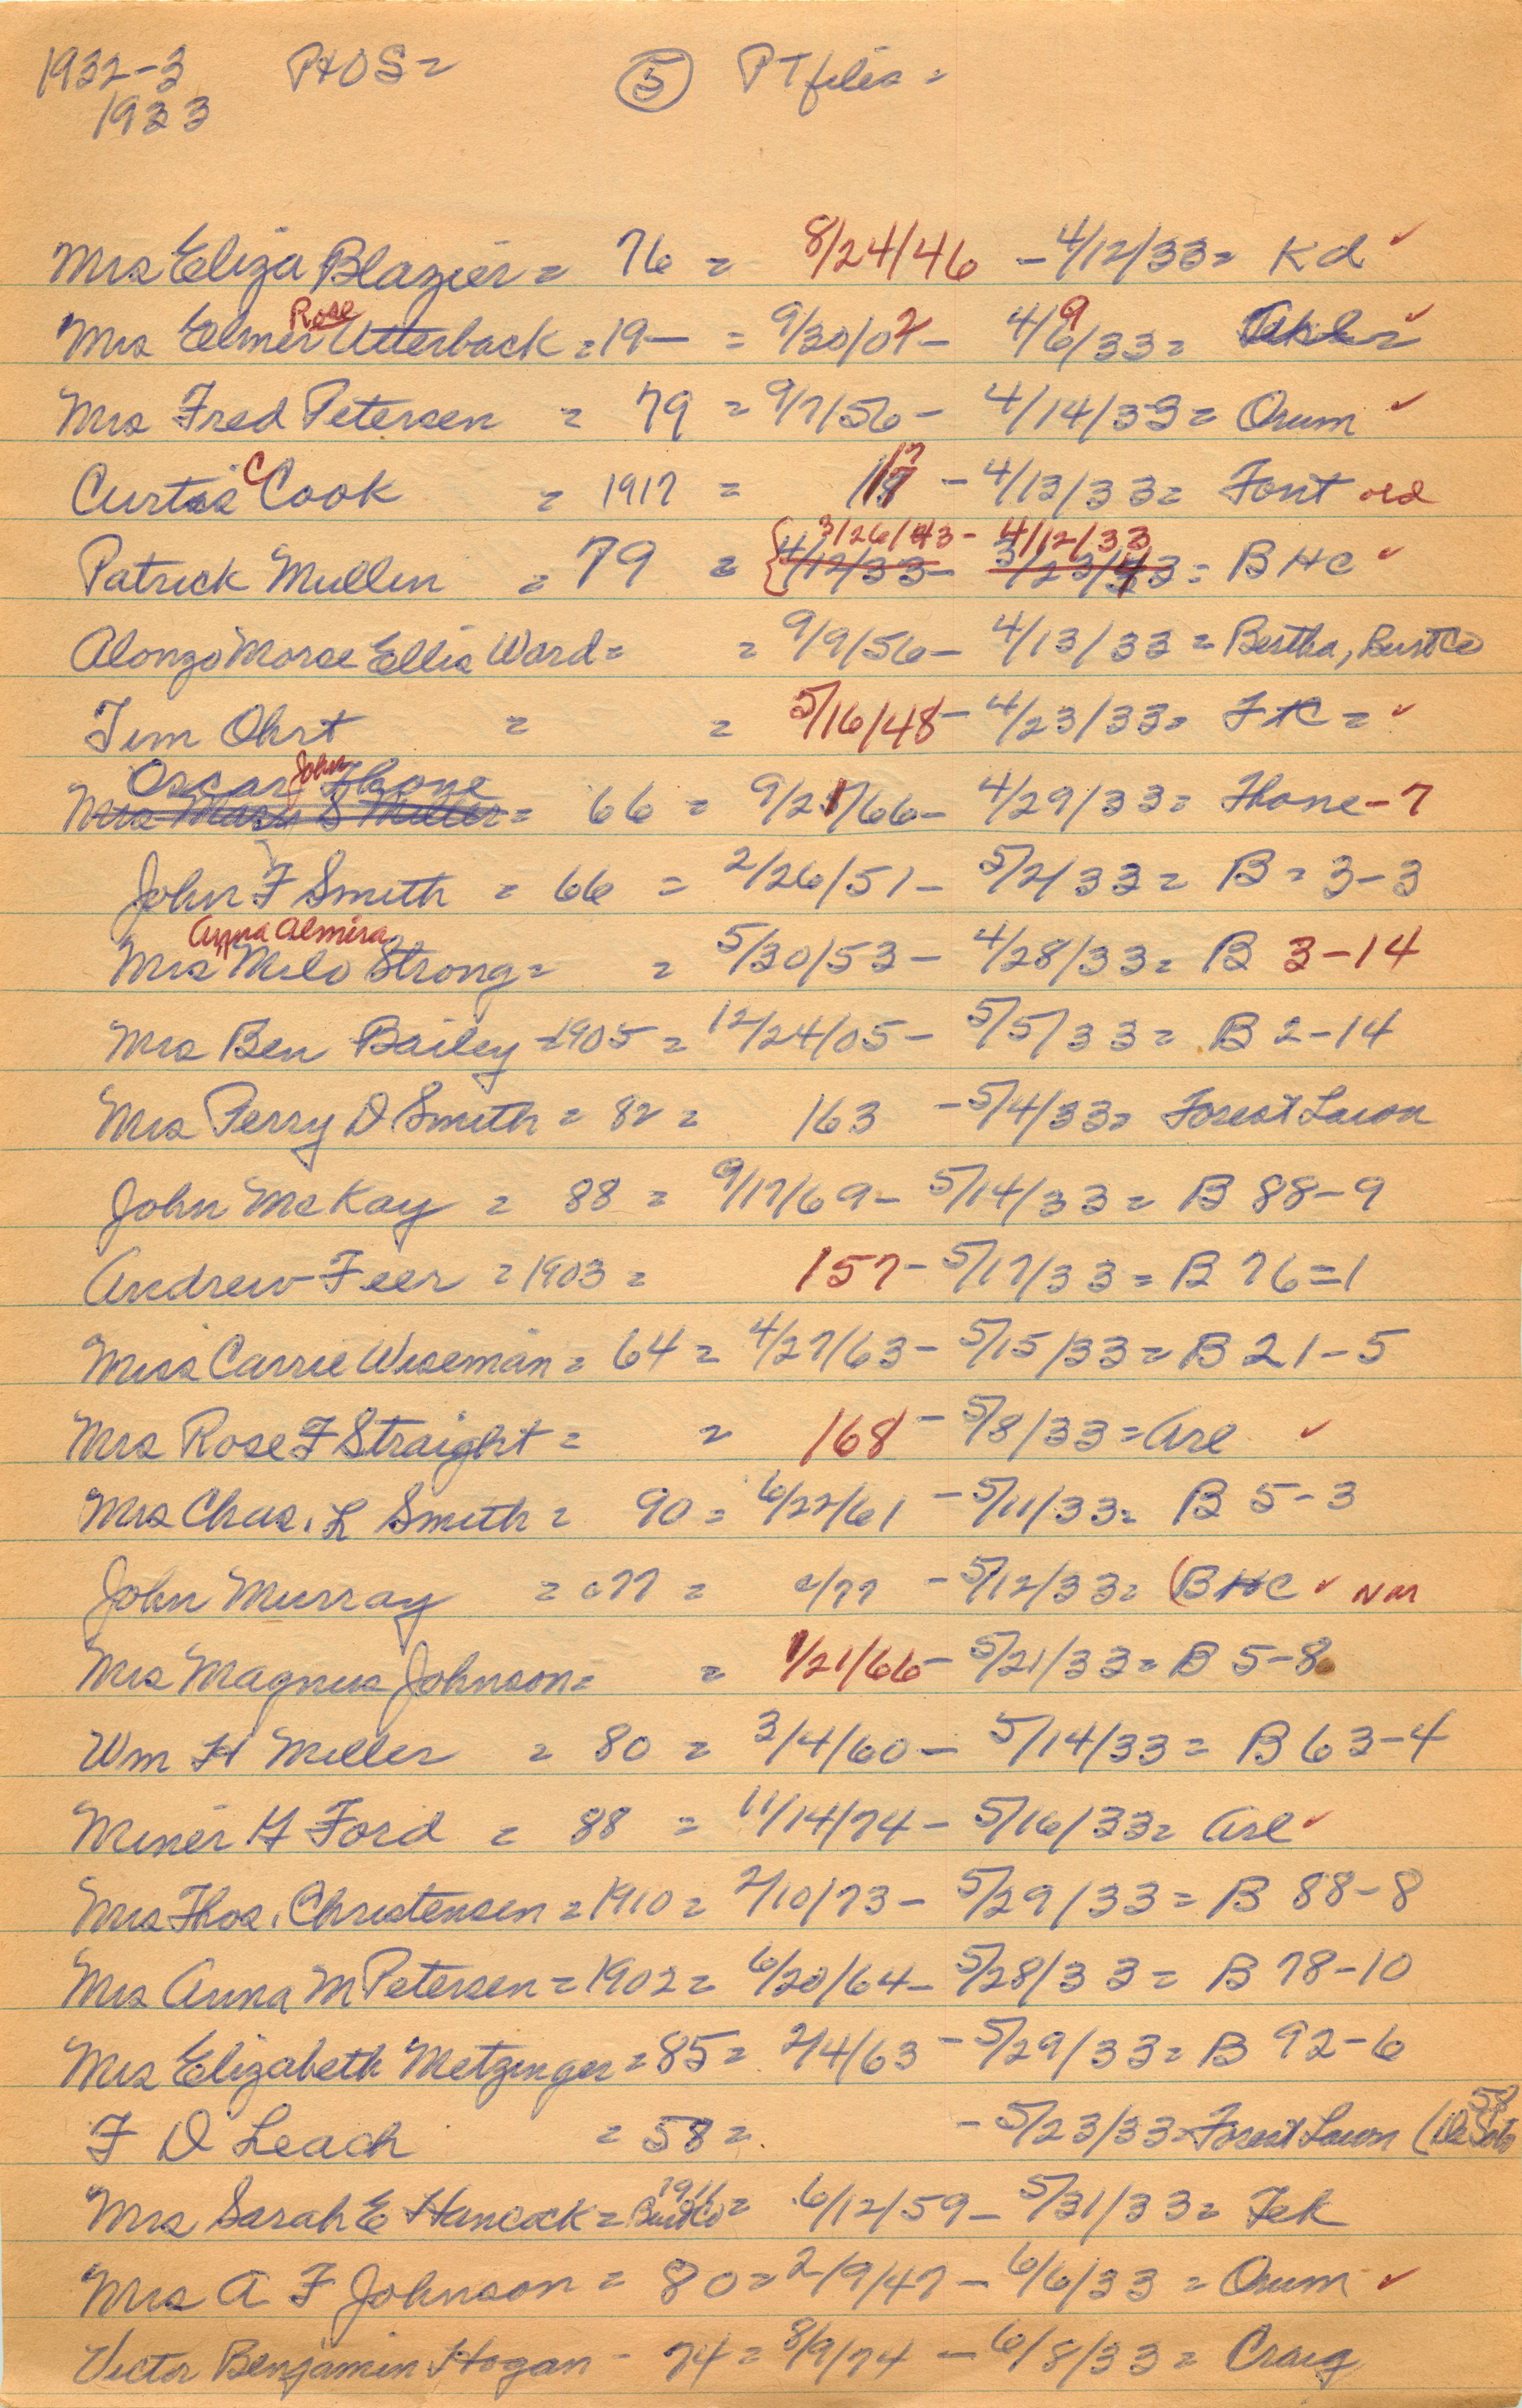 1932-3 PHOS= (5) PT files =
1933
Mrs Eliza Blazier = 76 = 8/24/46 - 4/12/33= Kd ✓
Rose 9
Mrs Elmer Utterback = 19— = 9/30/02- 4/6/33= ✓
Mrs Fred Petersen = 79 = 9/7/56- 4/14/33= Orum ✓
C 17
Curtis Cook = 1917 = - 4/13/33= Font old
3/26/43- 4/12/33
Patrick Mullin = 79 = { 4/12/33- 3/23/43= BHC ✓
Alonzo Morse Ellis Ward= = 9/9/56- 4/13/33= Bertha, BurtCo
Tim Ohrt = = 5/16/48- 4/23/33= FtC = ✓
Oscar John Thone
Mrs Mary S Miller= 66 = 9/21/66- 4/29/33= Thone-7
John F Smith = 66 = 2/26/51- 5/2/33= B= 3-3
Anna Almira
Mrs Milo Strong= = 5/30/53- 4/28/33= B 3-14
Mrs Ben Bailey =1905 = 12/24/05- 5/5/33= B 2-14
Mrs Perry D Smith= 82 = 163 -5/4/33= Forest Lawn
John McKay = 88 = 9/17/69- 5/14/33= B 88-9
Andrew Feer =1903 = 157-5/17/33= B 76=1
Miss Carrie Wiseman= 64= 4/27/63- 5/15/33= B 21-5
Mrs Rose F Straight= = 168 -5/8/33= Arl ✓
Mrs Chas. L Smith= 90= 6/22/61 -5/11/33= B 5-3
John Murray = c77 = c/77 -5/12/33= (BHC ✓ NM
Mrs Magnus Johnson= = 1/21/66- 5/21/33= B 5-8
Wm H Miller = 80 = 3/4/60- 5/14/33= B 63-4
Miner G Ford = 88 = 11/14/74- 5/16/33= Arl ✓
Mrs Thos. Christensen=1910= 2/10/73- 5/29/33= B 88-8
Mrs Anna M Petersen=1902= 6/20/64- 5/28/33= B 78-10
Mrs Elizabeth Metzinger=85= 2/4/63 -5/29/33= B 92-6
58
F D Leach = 58 = -5/23/33= Forest Lawn (De Soto
1911
Mrs Sarah E Hancock= BurtCo= 6/12/59- 5/31/33= Tek
Mrs A F Johnson= 80= 2/9/47- 6/6/33 = Orum ✓
Victor Benjamin Hogan - 74= 8/9/74 - 6/8/33= Craig